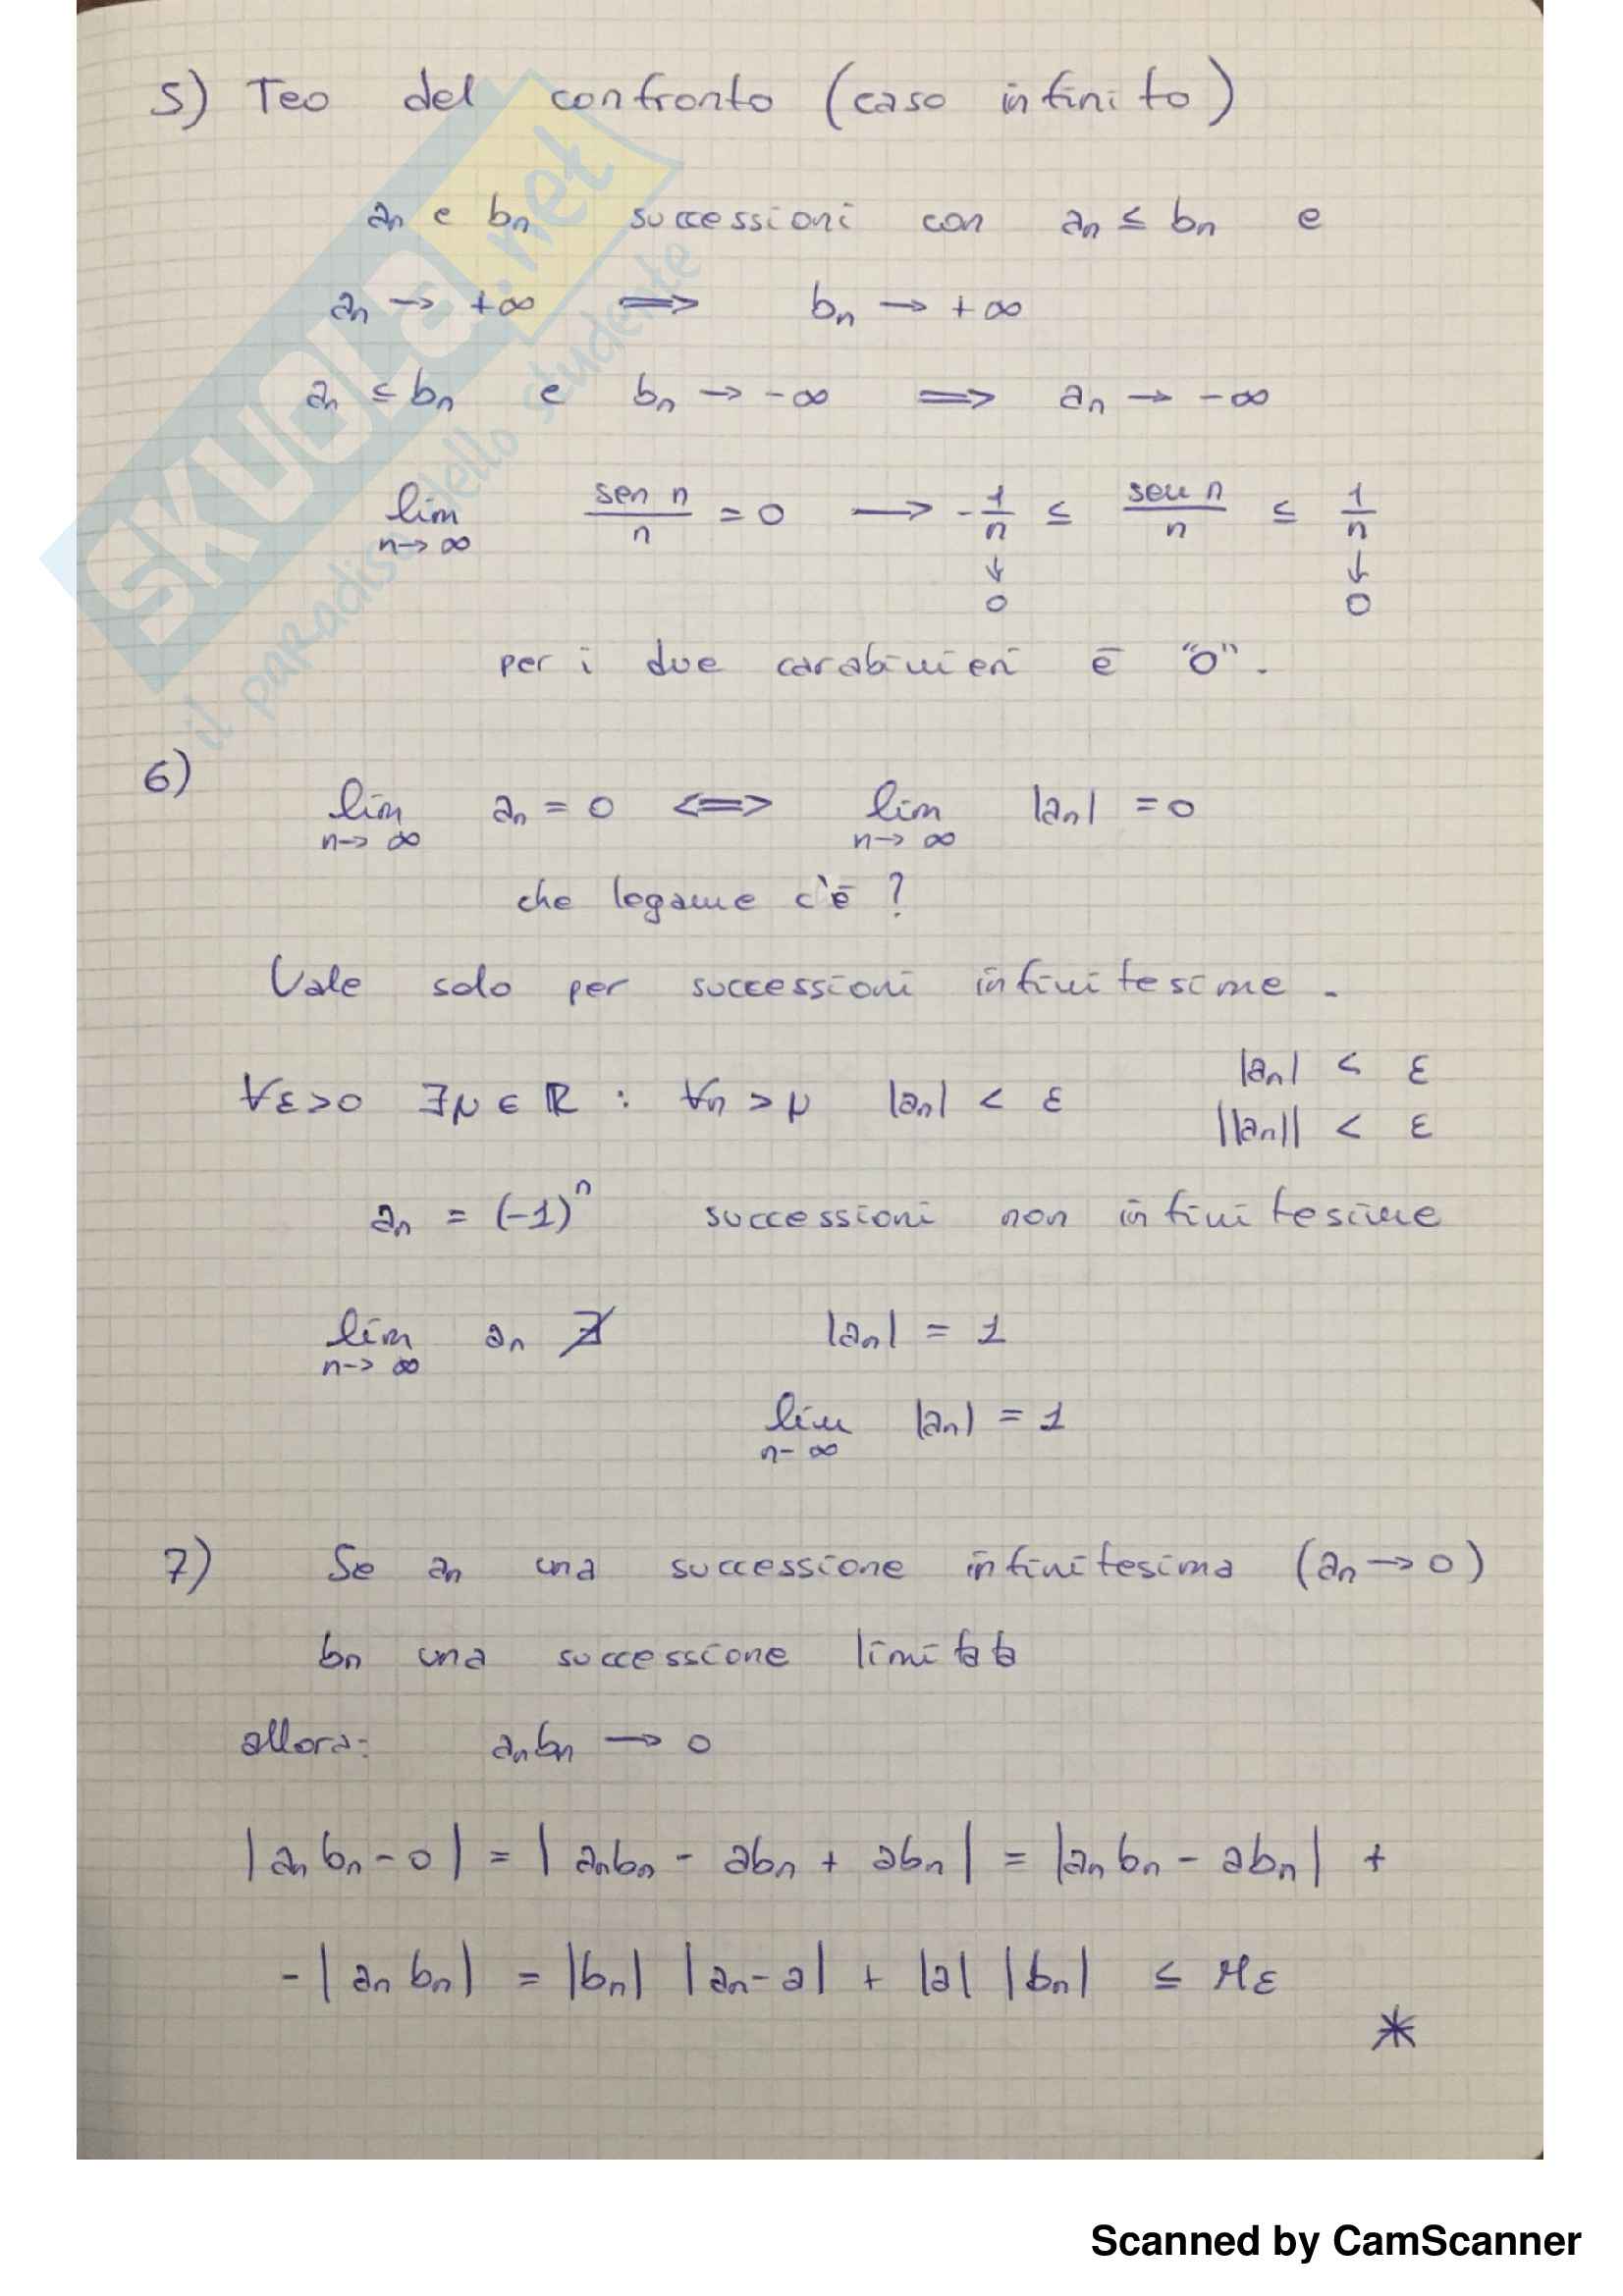 5) Teo del confronto (caso infinito)
an e bn successioni con an ≤ bn e
an → +∞ ⟹ bn → +∞
an ≤ bn e bn → -∞ ⟹ an → -∞
lim n→∞ sen n / n = 0 → -1/n ≤ sen n / n ≤ 1/n
↓ ↓
0 0
per i due carabinieri è "0".
6)
lim n→∞ an = 0 <=> lim n→∞ |an| = 0
che legame c'è ?
Vale solo per successioni infinitesime.
|an| < ε
∀ε>0 ∃μ∈ℝ : ∀n>μ |an| < ε
||an|| < ε
an = (-1)^n successioni non infinitesime
lim n→∞ an ∄ |an| = 1
lim n-∞ |an| = 1
7) Se an una successione infinitesima (an → 0)
bn una successione limitata
allora: anbn → 0
|an bn - 0| = |anbn - abn + abn| = |an bn - abn| +
-|an bn| = |bn| |an-a| + |a| |bn| ≤ Mε
*
SKUOLA.net
il paradiso dello studente
Scanned by CamScanner